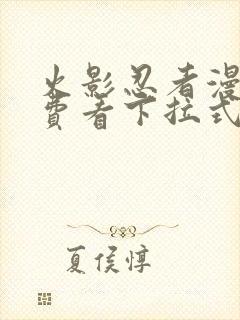 火影忍者漫
费看下拉式
夏侯惇